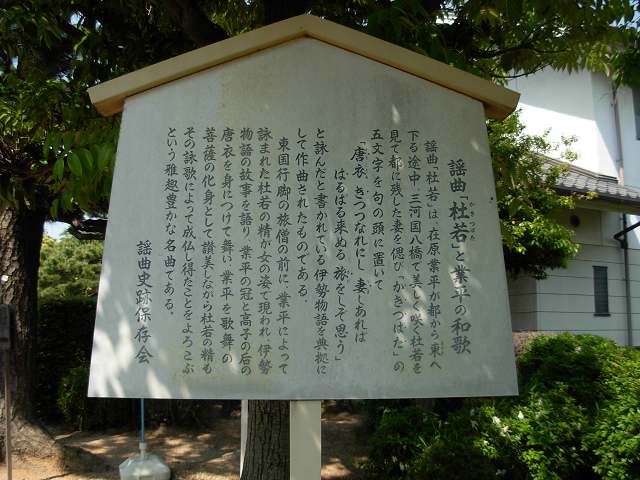 謡曲「杜若」と業平の和歌
かきつばた
謡曲「杜若」は、在原業平が都から東へ
下る途中、三河国八橋で美しく咲く杜若を
見て都に残した妻を偲び「かきつばた」の
五文字を句の頭に置いて
「唐衣、きつつなれにし、妻しあれば
はるばる来ぬる 旅をしぞ思う」
と詠んだと書かれている伊勢物語を典拠に
して作曲されたものである。
東国行脚の旅僧の前に、業平によって
詠まれた杜若の精が女の姿で現われ、伊勢
物語の故事を語り、業平の冠と高子の后の
唐衣を身につけて舞い、業平を歌舞の
菩薩の化身として讃美しながら杜若の精も
その詠歌によって成仏し得たことをよろこぶ
という雅趣豊かな名曲である。
謡曲史跡保存会